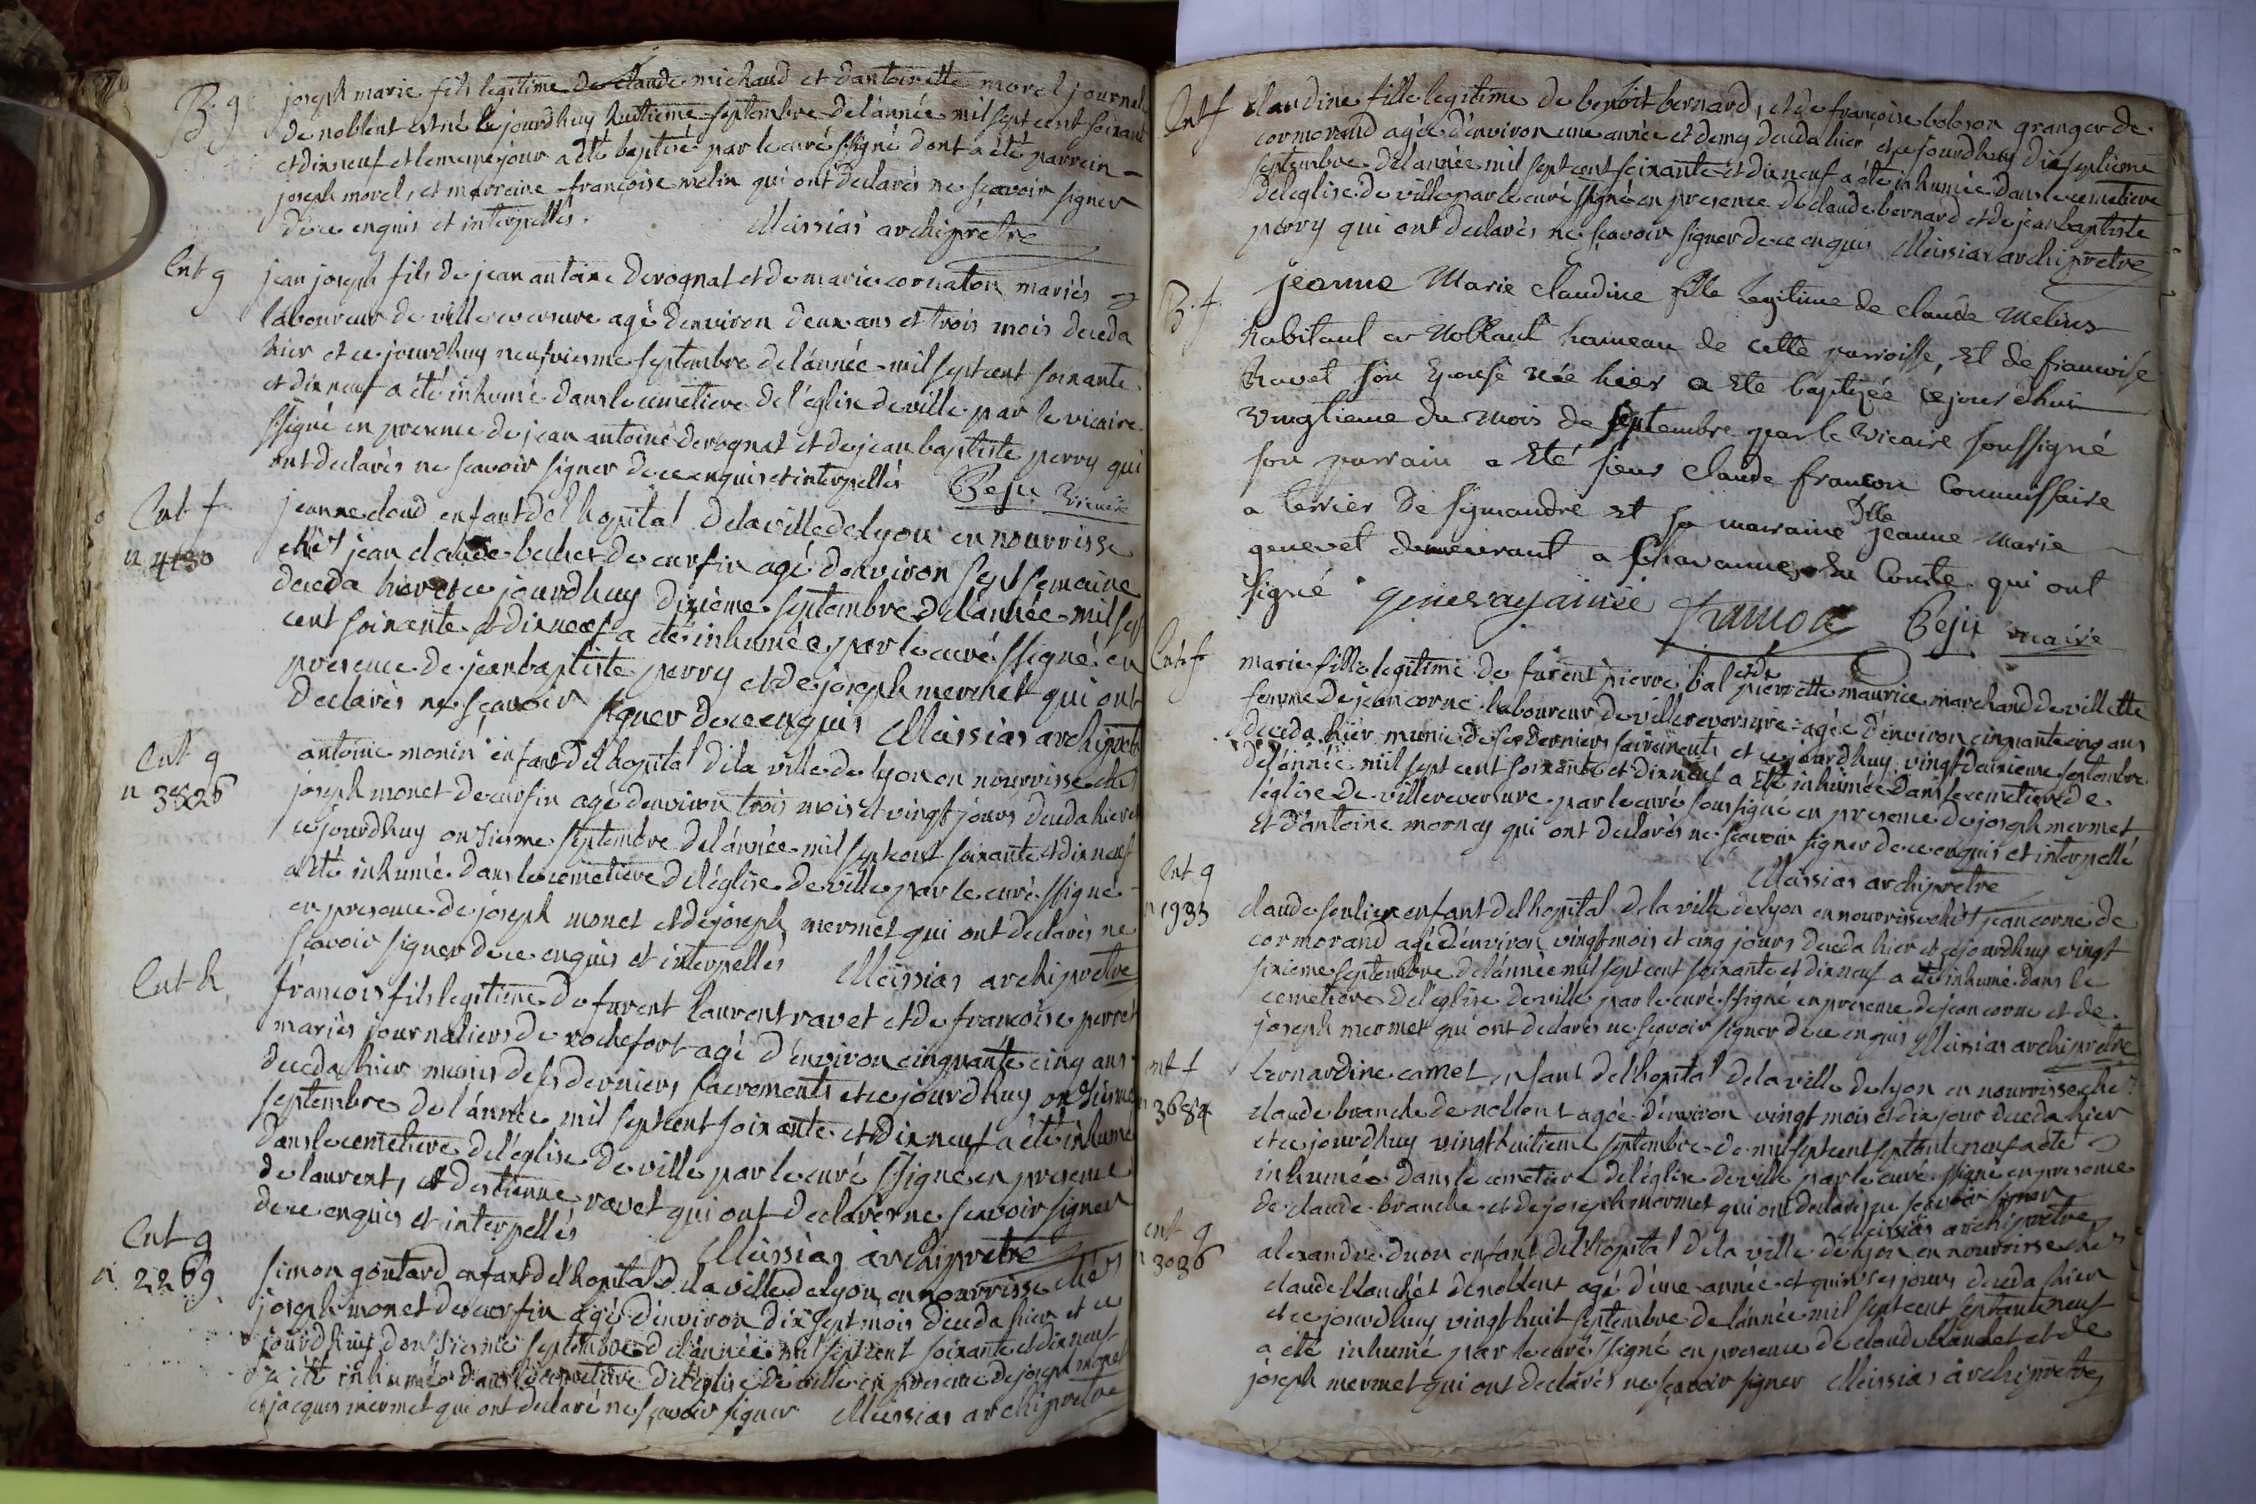 B. g
joseph marie fils legitime de claude michaud et dantoinette morel journal
de noblent est né le jourdhuy huitieme septembre de l'année mil sept cent soixant
et dix neuf et le meme jour a été baptisé par le curé ssigné dont a été parrein
joseph morel, et marreine françoise melin qui ont declarés ne sçavoir signer
de ce enquis et interpellés. Messias archiprêtre
Ent g
jean joseph fils de jean antoine derognat et de marie cornaton mariés
laboureur de villereversure agé denviron deux ans et trois mois deceda
hier et ce jourdhuy neufviesme septembre de l'année mil sept cent soixante
et dix neuf a été inhumé dans le cemetiere de l'église de ville par le vicaire
ssigné en presence de jean antoine derognat et de jean baptiste perry qui
ont declarés ne scavoir signer de ce enquis et interpellés Beju vicaire
Ent f
n 4130
jeanne cloud enfant de l'hopital de la ville de lyon en nourrisse
chés jean claude bechet de curfin agé denviron sept semaine
deceda hier et ce jourdhuy dixieme septembre de l'année mil sep
cent soixante et dix neuf a été inhumée par le curé ssigné en
presence de jean baptiste perry et de joseph mermet qui ont
declarés ne sçavoir signer de ce enquis Messias archiprêtre
Ent g
n 3826
antoine monin enfant de l'hopital de la ville de lyon en nourrisse chés
joseph monet de curfin agé denviron trois mois et vingt jours deceda hier et
ce jourdhuy onsiesme septembre de l'année mil sept cent soixante et dix neuf
a été inhumé dans le cemetiere de l'église de ville par le curé ssigné
en presence de joseph monet et de joseph mermet qui ont declarés ne
scavoir signer de ce enquis et interpellés Messias archiprêtre
Ent h
françois fils legitime de furent laurent ravet et de francoise perret
mariés journaliers de rochefort agé d'environ cinquante cinq ans
deceda hier munis de ses derniers sacrements et ce jourdhuy onsiesme
septembre de l'année mil sept cent soixante et dix neuf a été inhumé
dans le cemetiere de l'église de ville par le curé ssigné en presence
de laurent, et destienne ravet qui ont declarés ne scavoir signer
de ce enquis et interpellés Messias archiprêtre
Ent g
n 2269
simon goutard enfant de l'hopital de la ville de lyon en nourrisse chés
joseph monet de curfin agé d'environ dix sept mois deceda hier et ce
jourdhuy dousiesme septembre de l'année mil sept cent soixante et dix neuf
a été inhumé dans le cemetiere de l'église de ville en presence de joseph monet
et jacques mermet qui ont declaré ne sçavoir signer Messias archiprêtre
Ent f
claudine fille legitime de benoit bernard, et de françoise boloson granger de
cormorand agée d'environ une année et demy deceda hier et ce jourdhuy dix septieme
septembre de l'année mil sept cent soixante et dix neuf a été inhumée dans le cemetiere
de l'eglise de ville par le curé ssigné en presence de claude bernard et de jean baptiste
perry qui ont declarés ne scavoir signer de ce enquis Messias archiprêtre
B. f.
jeanne Marie claudine fille legitime de claude Melins
habitant a Noblant hameau de cette parroisse, et de françoise
Ravet son Epouse née hier a eté baptizée ce jour dhui
vingtieme du mois de septembre par le vicaire soussigné
son parrain a eté sieur claude françon Commissaire
a terrier de simandre et sa marraine Dlle jeanne Marie
genevet demeurant a Chavannes en Comté qui ont
signé genevay ainée francon Beju vicaire
Ent f
marie fille legitime de furent pierre bal et de pierrette maurice marchand de villette
femme de jean corne laboureur de villereversure agée d'environ cinquante cinq ans
deceda hier munie de ses derniers sacrements et ce jourdhuy vingt deuxieme septembre
de l'année mil sept cent soixante et dix neuf a eté inhumée dans le cemetiere de
l'église de villereversure par le curé soussigné en presence de joseph mermet
et d'antoine mornay qui ont declarés ne scavoir signer de ce enquis et interpellé
Messias archiprêtre
Ent g
n 1933
claude soulier enfant de l'hopital de la ville de lyon en nourrisse chés jean corne de
cormorand agé d'environ vingt mois et cinq jours deceda hier et ce jourdhuy vingt
sixieme septembre de l'année mil sept cent soixante et dix neuf a été inhumé dans le
cemetiere de l'eglise de ville par le curé ssigné en presence de jean corne et de
joseph mermet qui ont declarés ne scavoir signer de ce enquis Messias archiprêtre
ent f
n 3684
bernardine camet enfant de l'hopital de la ville de lyon en nourrisse chés
claude branche de noblent agée d'environ vingt mois et dix jour deceda hier
et ce jourdhuy vingt huitieme septembre de mil sept cent septante neuf a été
inhumée dans le cemetiere de l'église de ville par le curé ssigné en presence
de claude branche et de joseph mermet qui ont declarés ne scavoir signer
Messias archiprêtre
ent g
n 3036
alexandre duon enfant de l'hopital de la ville de lyon en nourrisse chés
claude blanchet de noblent agé d'une année et quinses jours deceda hier
et ce jourdhuy vingt huit septembre de l'année mil sept cent septante neuf
a été inhumé par le curé ssigné en presence de claude blanchet et de
joseph mermet qui ont declarés ne sçavoir signer Messias archiprêtre